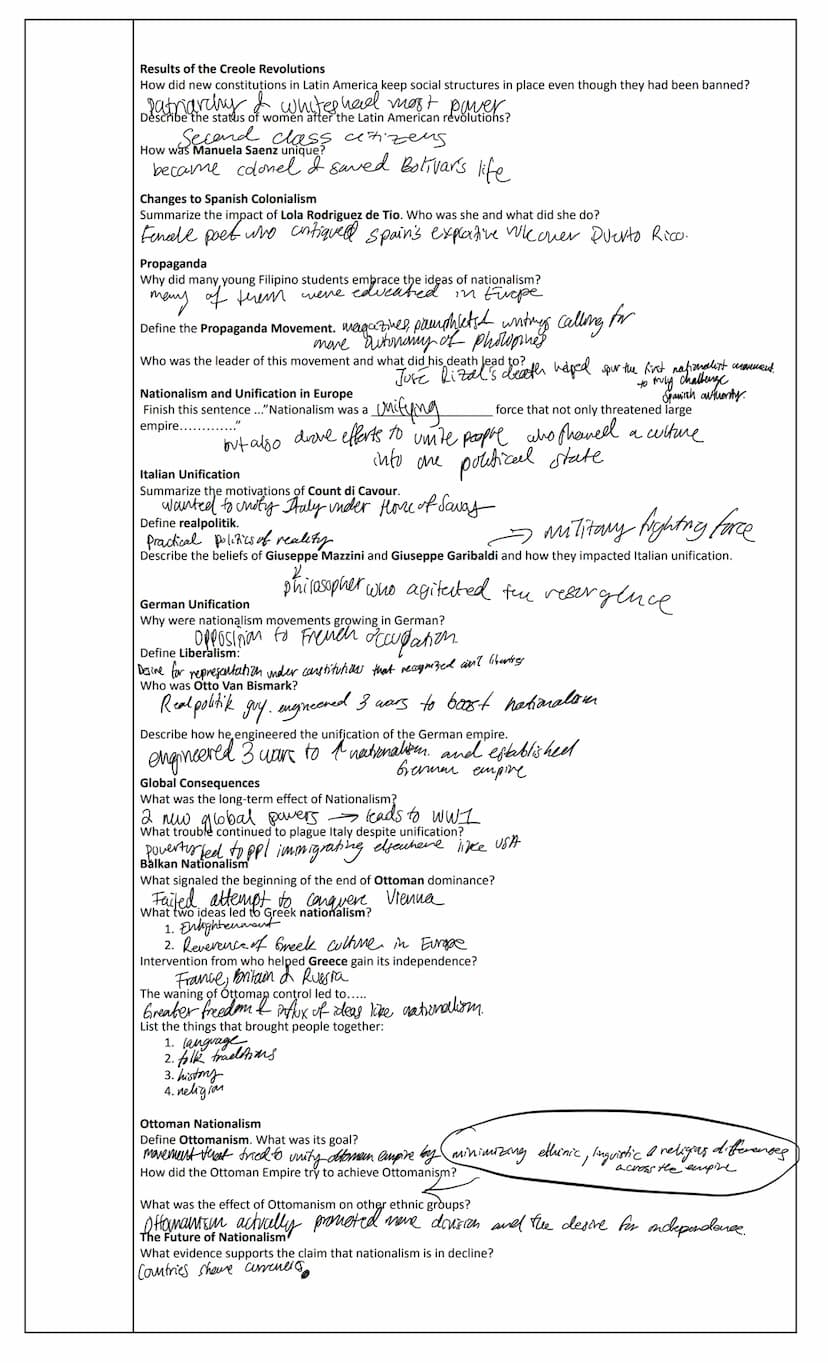 Results of the Creole Revolutions
How did new constitutions in Latin America keep social structures in place even though they had been banned?
patriarchy & whites had most power
Describe the status of women after the Latin American revolutions?
Second class citizens
How was Manuela Saenz unique?
became colonel & saved Bolivar's life
Changes to Spanish Colonialism
Summarize the impact of Lola Rodriguez de Tio. Who was she and what did she do?
Female poet who critiqued Spain's over Puerto Rico.
Propaganda
Why did many young Filipino students embrace the ideas of nationalism?
many of them were educated in Europe
Define the Propaganda Movement. magazines, pamphlets & writings calling for
more autonomy of
Who was the leader of this movement and what did his death lead to?
José Rizal's death helped spur the first nationalist movement
to truly challenge
Spanish authority.
Nationalism and Unification in Europe
Finish this sentence …"Nationalism was a unifying force that not only threatened large
empire…………"
but also drove efforts to unite people who shared a culture
into one political state
Italian Unification
Summarize the motivations of Count di Cavour.
wanted to unify Italy under House of Savoy
Define realpolitik.
Practical politics of reality
→ military fighting force
Describe the beliefs of Giuseppe Mazzini and Giuseppe Garibaldi and how they impacted Italian unification.
philosopher who agitated for resurgence
German Unification
Why were nationalism movements growing in German?
Opposition to French occupation
Define Liberalism:
Desire for representation under constitutions that recognized civil liberties
Who was Otto Van Bismark?
Realpolitik guy. engineered 3 wars to boost nationalism
Describe how he engineered the unification of the German empire.
engineered 3 wars to ↑ nationalism. and established
German empire
Global Consequences
What was the long-term effect of Nationalism?
2 new global powers → leads to WW1
What trouble continued to plague Italy despite unification?
Poverty led to ppl immigrating elsewhere like USA
Balkan Nationalism
What signaled the beginning of the end of Ottoman dominance?
Failed attempt to conquere Vienna
What two ideas led to Greek nationalism?
1. Enlightenment
2. Reverence of Greek culture in Europe
Intervention from who helped Greece gain its independence?
France, Britain & Russia
The waning of Ottoman control led to…..
Greater freedom & influx of ideas like nationalism.
List the things that brought people together:
1. language
2. folk traditions
3. history
4. religion
Ottoman Nationalism
Define Ottomanism. What was its goal?
movement that tried to unify ottoman empire by minimizing ethinic, linguistic & religious differences
across the empire
How did the Ottoman Empire try to achieve Ottomanism?
What was the effect of Ottomanism on other ethnic groups?
Ottomanism actually promoted more division and the desire for independence.
The Future of Nationalism
What evidence supports the claim that nationalism is in decline?
Countries share